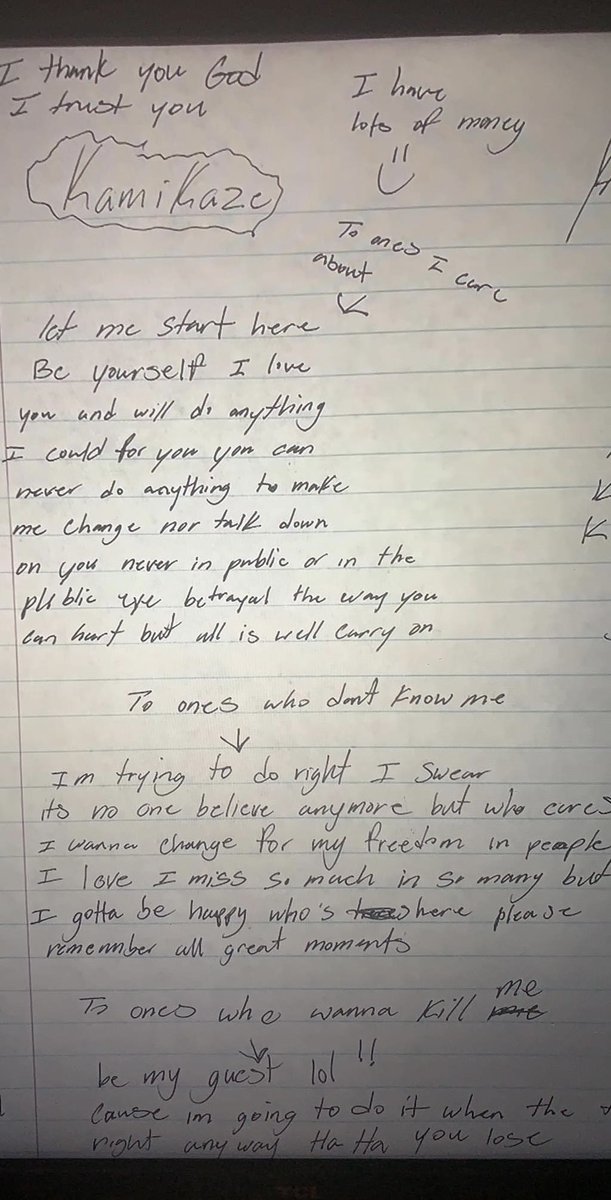 I thank you God
I trust you
I have
lots of money
Kamikaze
To ones I care
about
let me start here
Be yourself I love
you and will do anything
I could for you you can
never do anything to make
me change nor talk down
on you never in public or in the
public eye betrayal the way you
can hurt but all is well carry on
To ones who dont know me
Im trying to do right I swear
its no one believe anymore but who cares
I wanna change for my freedom in people
I love I miss so much in so many but
I gotta be happy who's here please
remember all great moments
To ones who wanna kill me
be my guest lol !!
Cause im going to do it when the
right anyway Ha Ha you lose